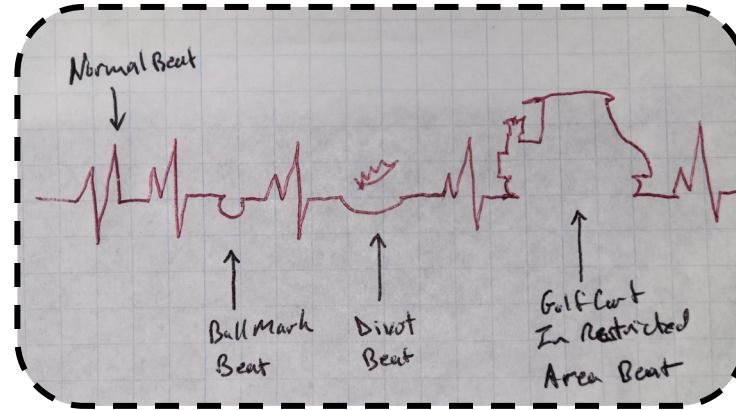 Normal Beat
Ball Mark
Beat
Divot
Beat
Golf Cart
In Restricted
Area Beat